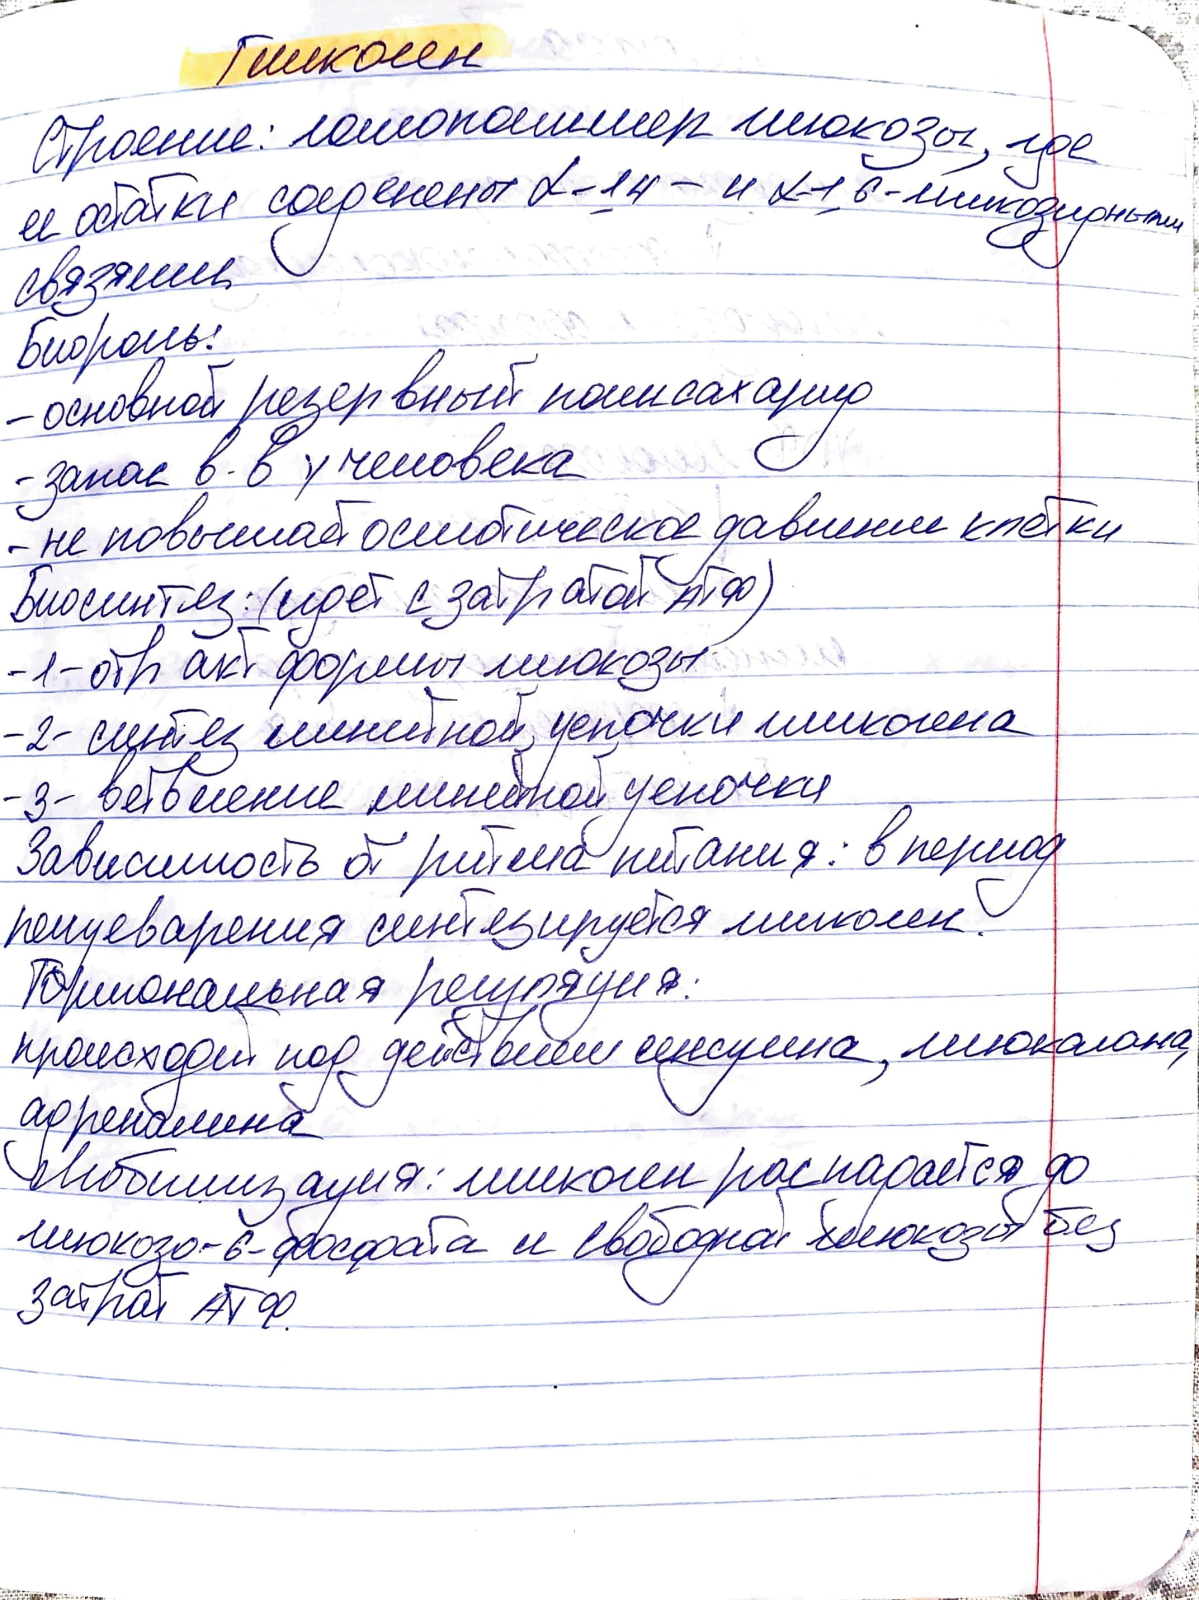 Гликоген
Строение: гомополимер глюкозы, где
ее остатки соеденены α-1,4- и α-1,6-гликозидными
связями
Биороль:
-основной резервный полисахарид
-запас в-в у человека
-не повышает осмотическое давление клетки
Биосинтез: (идет с затратой АТФ)
-1- отр акт формы глюкозы
-2- синтез линейной цепочки гликогена
-3- ветвление линейной цепочки
Зависимость от ритма питания: в период
пещеварения синтезируется гликоген.
Гормональная регуляция:
происходит под действием инсулина, глюкагона,
адреналина
Мобилизация: гликоген распадается до
глюкозо-6-фосфата и свободной глюкозы без
затрат АТФ.